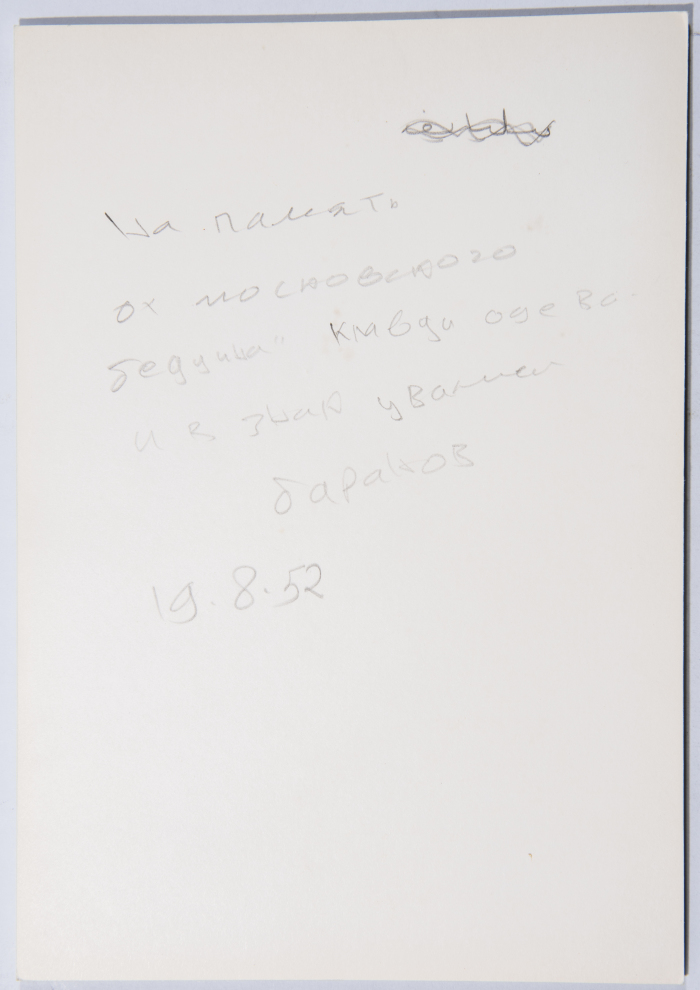 На память
от московского
бедуина" Клавди оде во
и в знак уважен
баранов
19.8.52